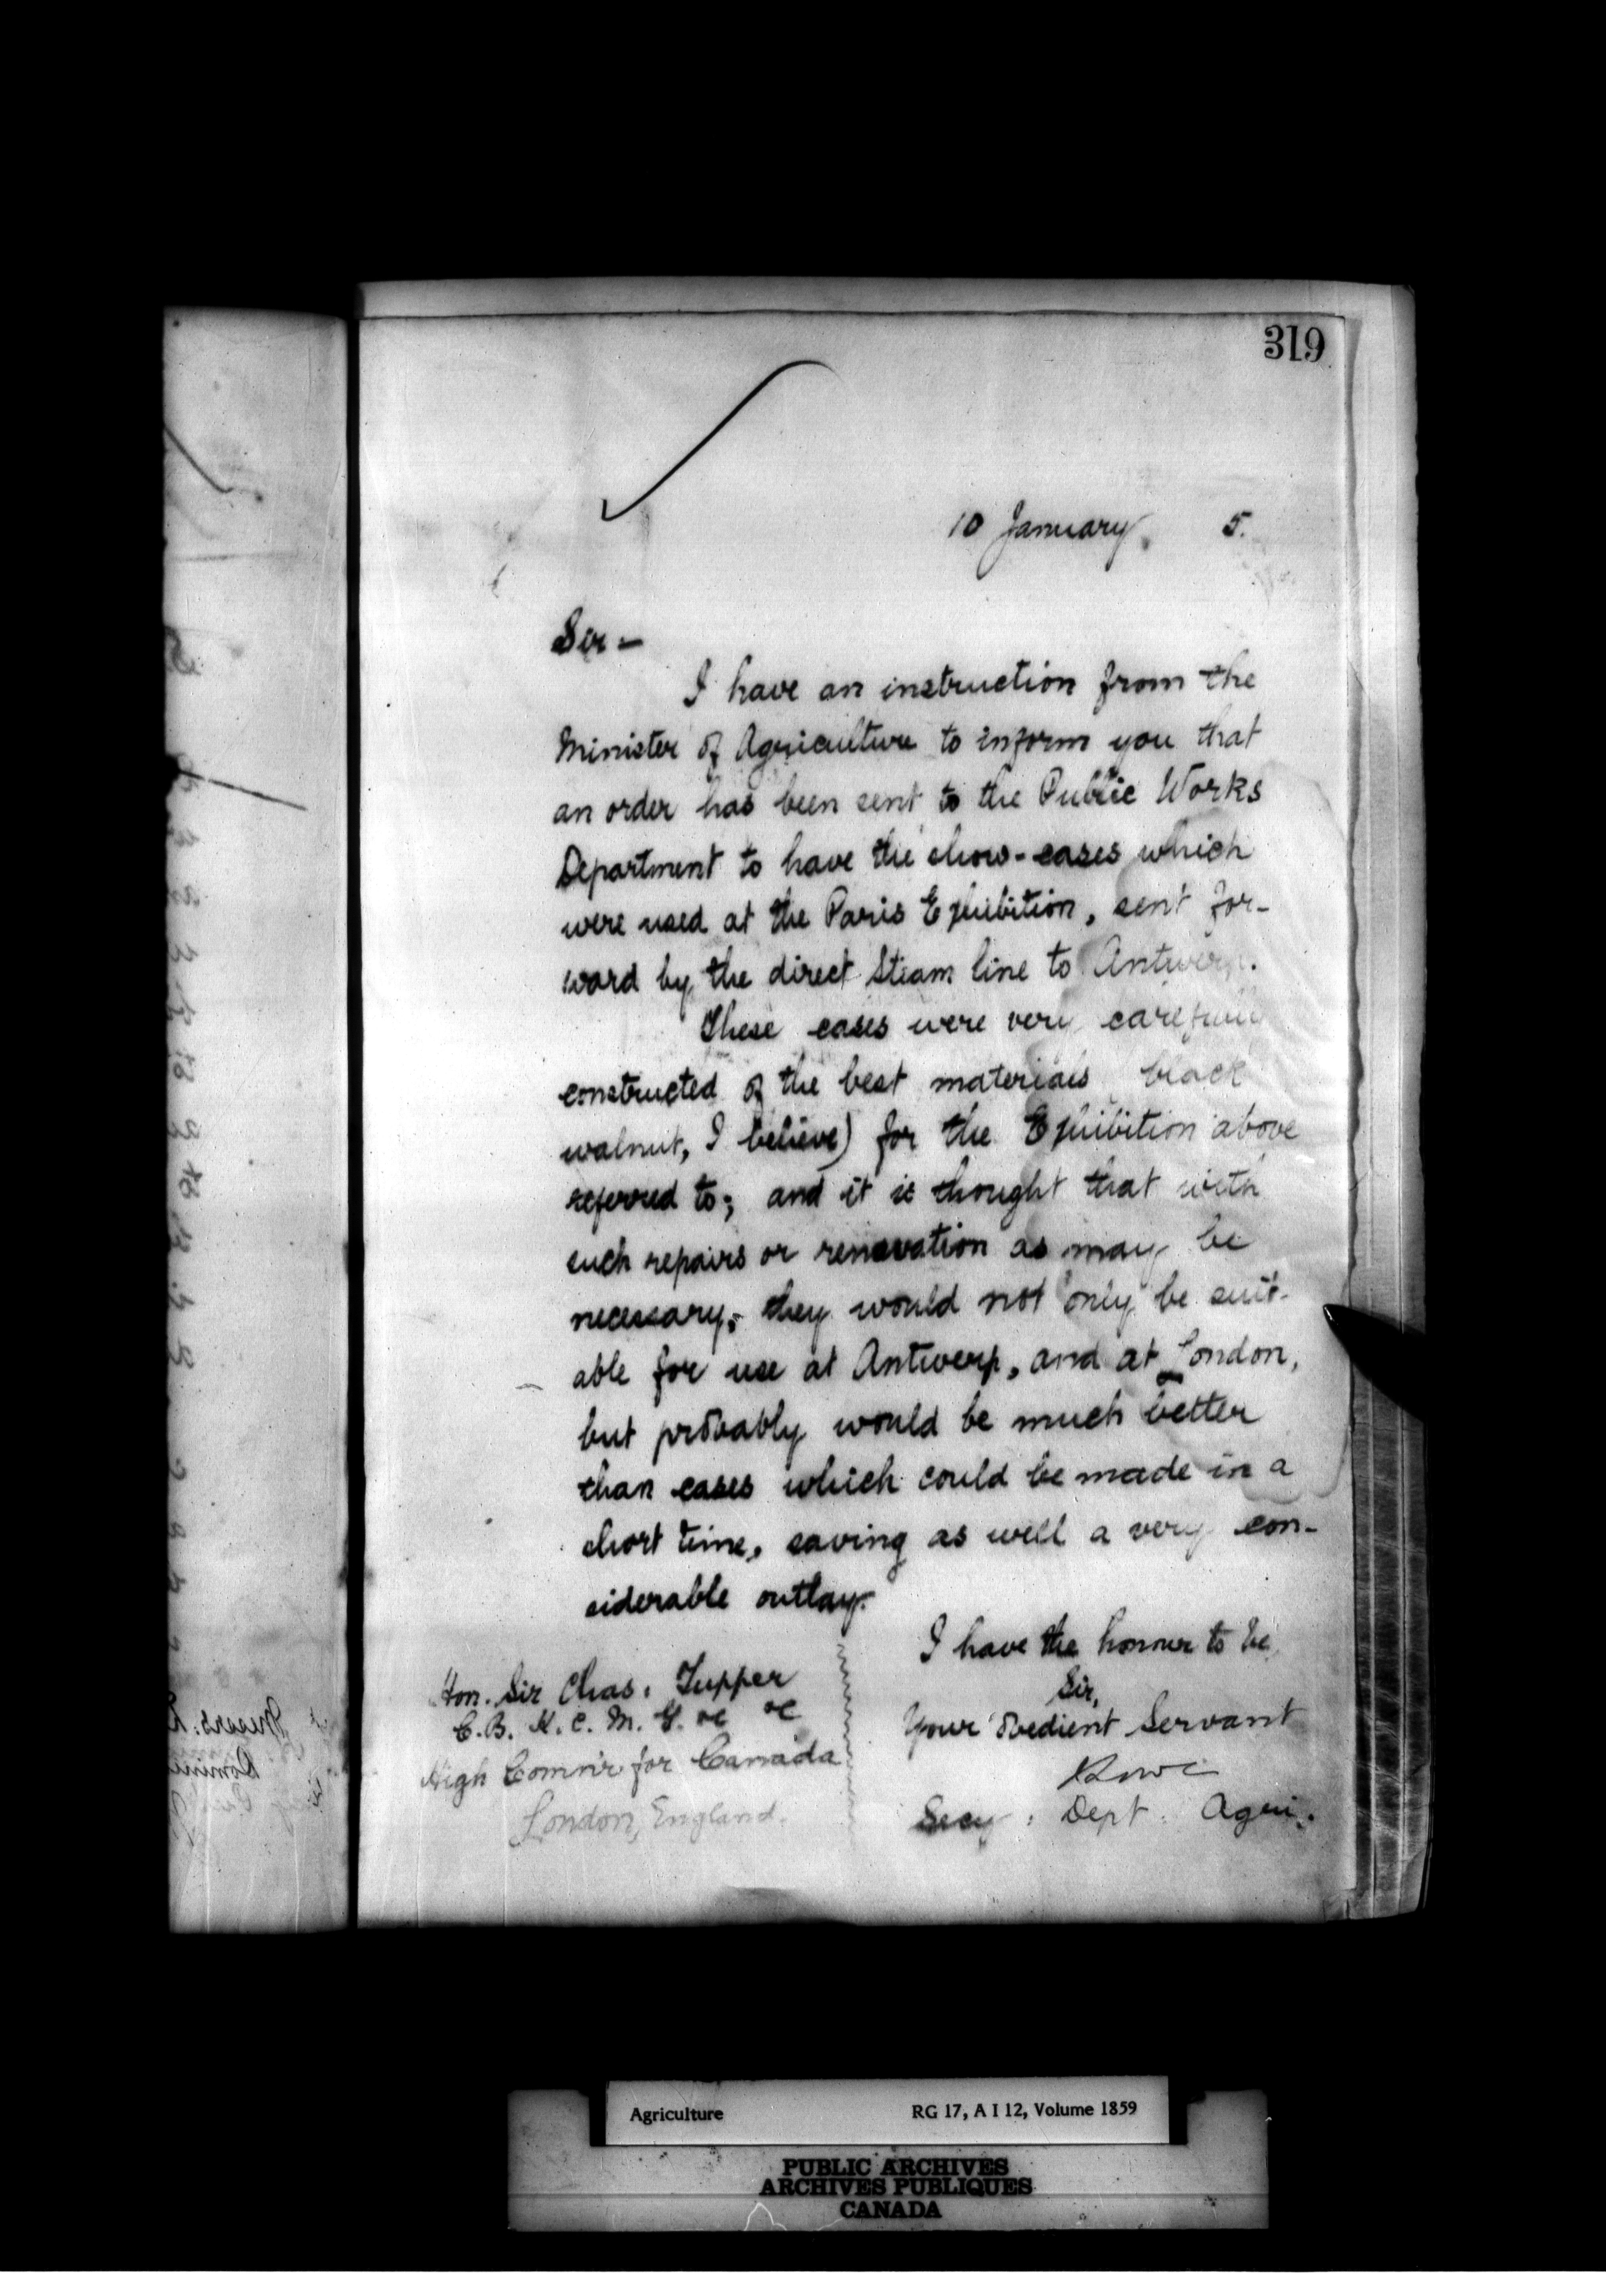 319
10 January, 5.
Sir -
I have an instruction from the
Minister of Agriculture to inform you that
an order has been sent to the Public Works
Department to have the show-cases which
were used at the Paris Exhibition, sent for-
ward by the direct Steam line to Antwerp.
These cases were very carefully
constructed of the best materials black
walnut, I believe) for the Exhibition above
referred to; and it is thought that with
such repairs or renovation as may be
necessary, they would not only be suit-
able for use at Antwerp, and at London,
but probably would be much better
than cases which could be made in a
short time, saving as well a very con-
siderable outlay.
I have the honour to be,
Sir,
Your obedient Servant
Secy. Dept. Agri.
Hon. Sir Chas. Tupper
C.B. K.C.M.G. &c &c
High Comr for Canada
London, England.
Agriculture RG 17, A I 12, Volume 1859
PUBLIC ARCHIVES
ARCHIVES PUBLIQUES
CANADA